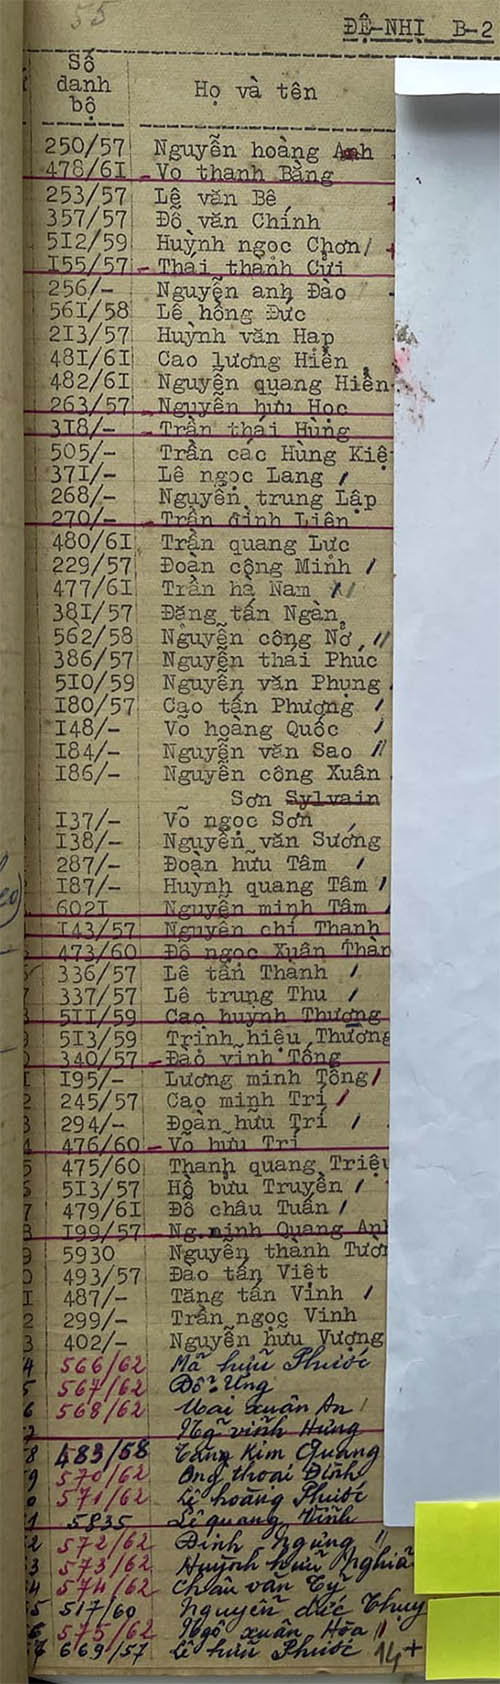 55
ĐỆ-NHỊ B-2
Số danh bộ Họ và tên
250/57 Nguyễn hoàng Anh
478/6I - Vo thanh Bằng
253/57 Lê văn Bê
357/57 Đỗ văn Chính
5I2/59 Huỳnh ngọc Chơn
I55/57 - Thái thanh Cửi
256/- Nguyễn anh Đào
56I/58 Lê hồng Đức
2I3/57 Huỳnh văn Hap
48I/6I Cao lương Hiền
482/6I Nguyễn quang Hiền
263/57 - Nguyễn hữu Học
3I8/- - Trần thái Hùng
505/- Trần các Hùng Kiệ
37I/- Lê ngọc Lang
268/- Nguyễn trung Lập
270/- - Trần đình Liên
480/6I Trần quang Lực
229/57 Đoàn công Minh
477/6I Trần hà Nam
38I/57 Đặng tấn Ngàn
562/58 Nguyễn công Nở
386/57 Nguyễn thái Phúc
5I0/59 Nguyễn văn Phụng
I80/57 Cao tấn Phượng
I48/- Võ hoàng Quốc
I84/- Nguyễn văn Sao
I86/- Nguyễn công Xuân
Sơn Sylvain
I37/- Võ ngọc Sơn
I38/- Nguyễn văn Sướng
287/- Đoàn hữu Tâm
I87/- Huỳnh quang Tâm
602I Nguyễn minh Tâm
I43/57 Nguyễn chí Thanh
473/60 Đỗ ngọc Xuân Thàn
336/57 Lê tấn Thành
337/57 Lê trung Thu
5II/59 Cao huỳnh Thượng
5I3/59 Trịnh hiếu Thường
340/57 - Đào vĩnh Tống
I95/- Lương minh Tông
245/57 Cao minh Trí
294/- Đoàn hữu Trí
476/60 - Võ hữu Trí
475/60 Thanh quang Triệu
5I3/57 Hồ bửu Truyền
479/6I Đỗ châu Tuấn
I99/57 - Ng.minh Quang Anh
5930 Nguyễn thành Tườn
493/57 Đào tấn Việt
487/- Tăng tấn Vinh
299/- Trần ngọc Vinh
402/- Nguyễn hữu Vương
566/62 Mã hữu Phước
567/62 Đỗ Ứng
568/62 Mai xuân An
Ngô vĩnh Hưng
483/58 Tăng Kim Quang
570/62 Ông thoại Đình
571/62 Lê hoàng Phước
5835 Lê quang Vĩnh
572/62 Đinh Ngưng
573/62 Huỳnh hữu Nghĩa
574/62 Châu văn Tỷ
517/60 Nguyễn đức Thuy
575/62 Ngô xuân Hòa
669/57 Lê hữu Phước 14+